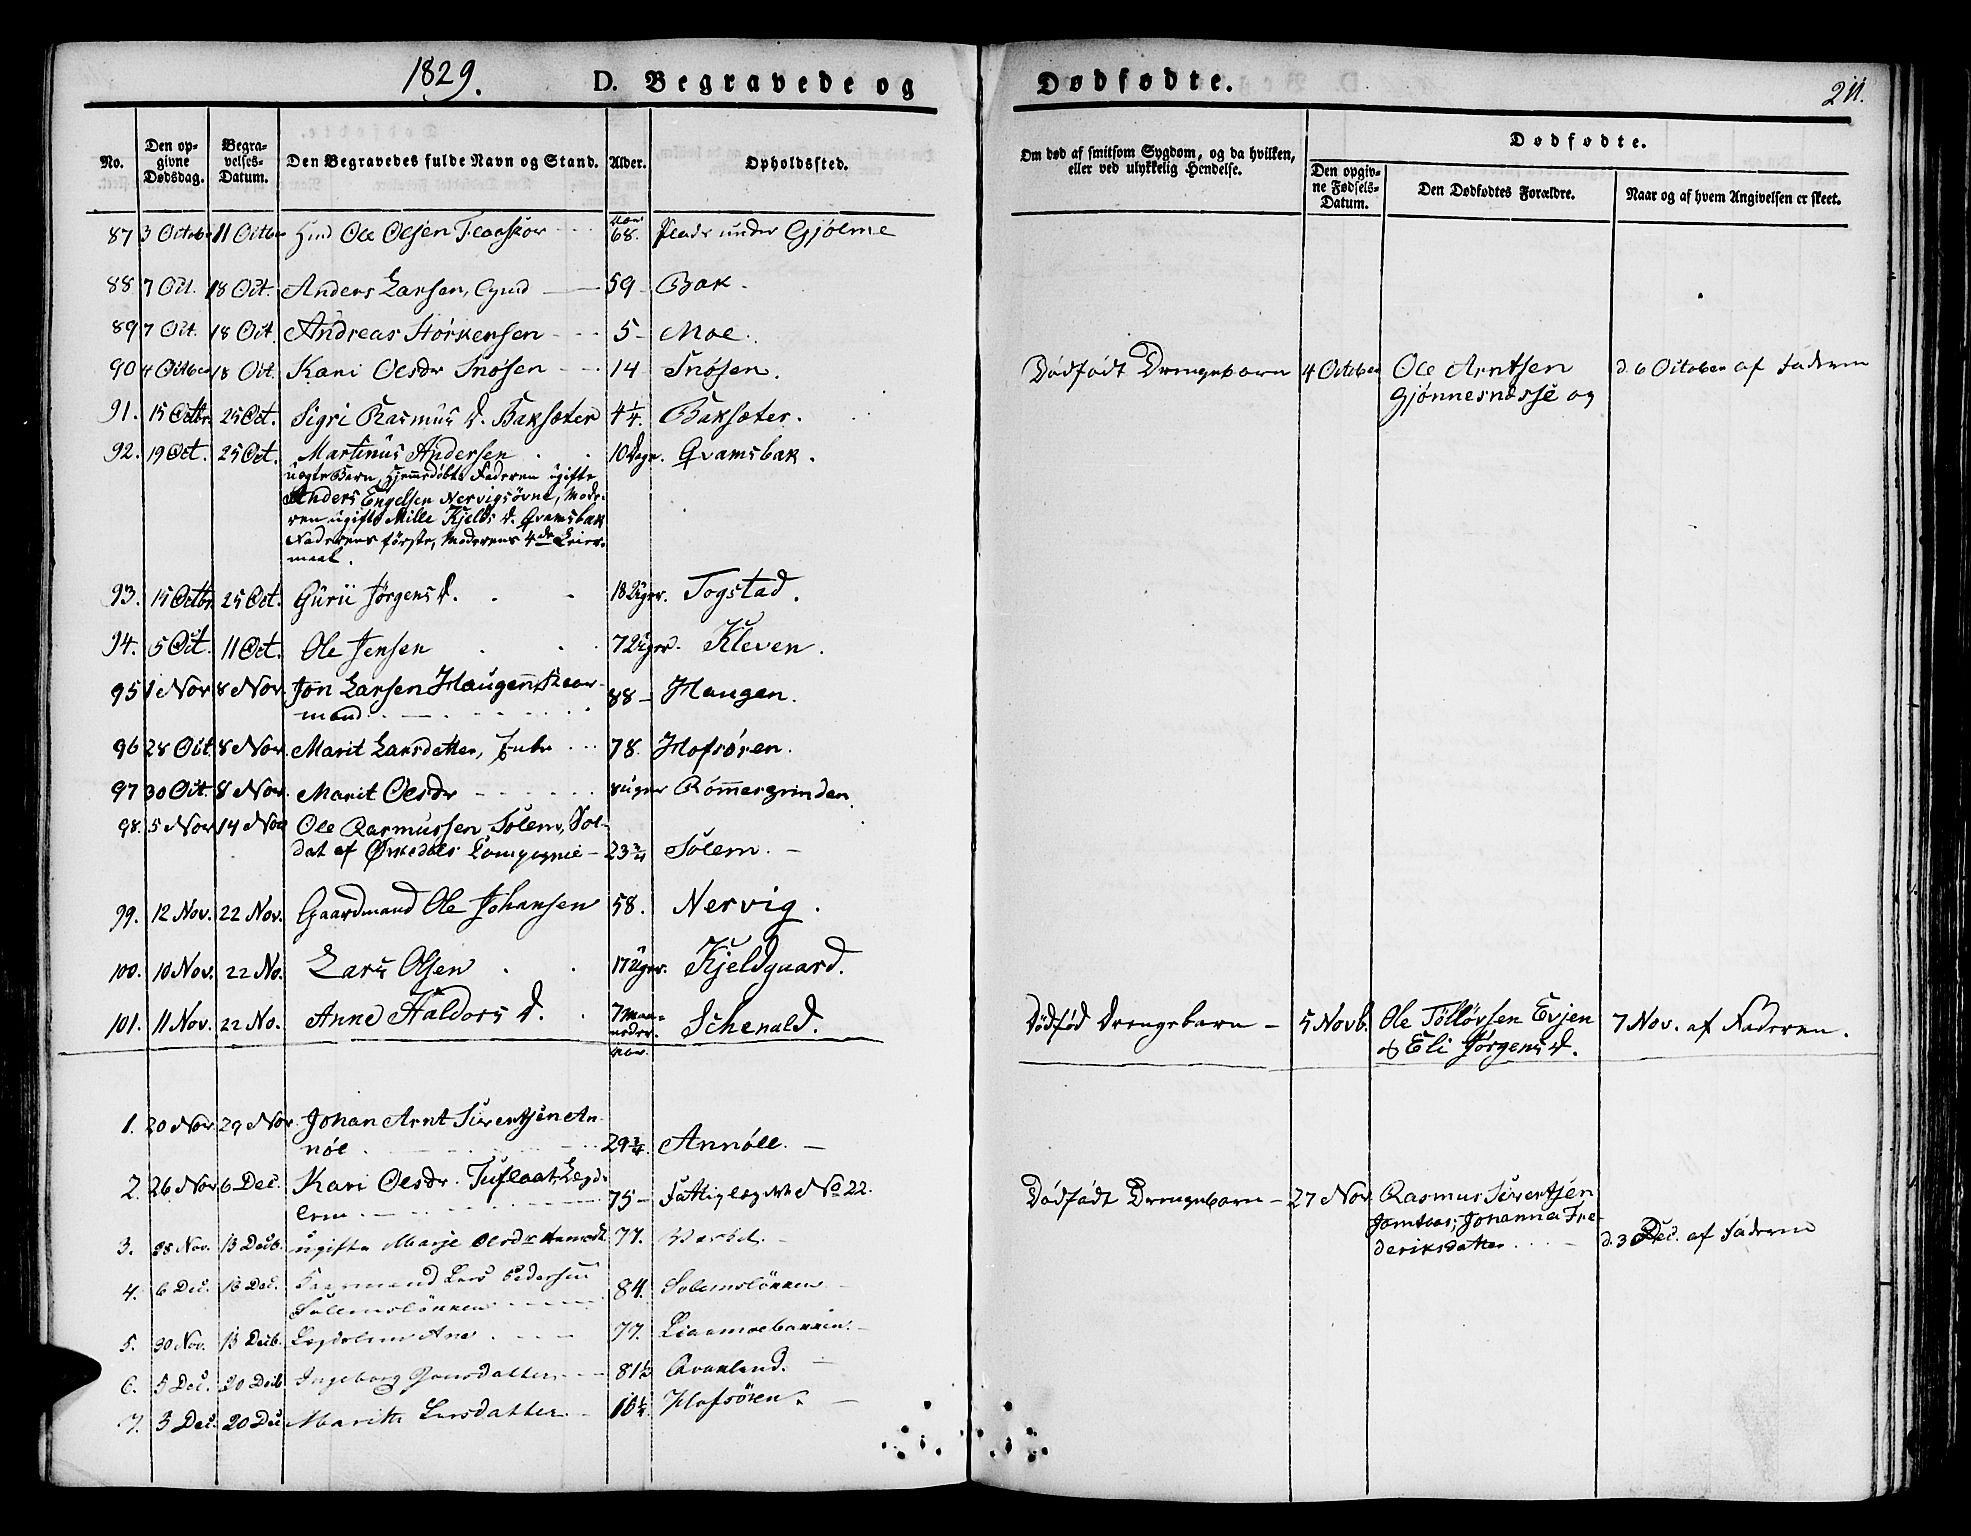 1829.
D. Begravede og
Dødfødte.
211.
No.
Den op-
givne
Dødsdag.
Begra-
velses-
Datum.
Den Begravedes fulde Navn og Stand.
Alder.
Opholdssted.
Om død af smitsom Sygdom, og da hvilken,
eller ved ulykkelig Hendelse.
Dødfødte.
Den opgiv-
ne Fødsels-
Datum.
Den Dødfødtes Forældre.
Naar og af hvem Angivelsen er skeet.
87 3 October 11 Octber Ole Olsen Flaaskor 68. Plads under Gjølme
88 7 Oct. 18 Oct. Anders Larsen, 59 - Bak.
89 7 Oct. 18 Oct. Andreas Størkersen 5 - Moe.
90 4 Octber 18 Oct. Kari Olsdr Snøsen 14 Snøsen.
Dødfødt Drengebarn 4 October Ole Arntsen d. 6 October af Faderen
Gjønnesnesse og
91. 15 Octbr. 25 Oct. Sigri Rasmus D. Baksæter 4 1/4. Baksæter.
92. 19 Oct. 25 Oct. Martinus Andersen 10 Dage. Qvamsbak.
uægte Barn, hjemmedøbt, Faderen ugifte
Anders Engelsen Nervigsøvne, Mode-
ren ugifte Mille Kjelds D. Qvamsbak
Faderens første, Moderens 4de Leier-
maal.
93. 15 Octbr. 25 Oct. Guru Jørgens D. 18 Uger. Togstad.
94. 5 Oct. 11 Oct. Ole Jensen 7 Uger. Kleven.
95 1 Nov 8 Nov. Jon Larsen Haugen, Kaar-
mand. 88 - Haugen.
96 28 Oct. 8 Nov. Marit Larsdatter, Enke 78. Hofsøren.
97 30 Oct. 8 Nov. Marit Olsdr 8 uger Rømmesgrinden
98. 5 Nov 14 Nov Ole Rasmussen Solem, Sol-
dat af Ørkedals Compagnie - 23 3/4 Solem. -
99. 12 Nov. 22 Nov. Gaardmand Ole Johansen 58. Nervig.
100. 10 Nov. 22 No. Lars Olsen 17 Uger. Kjeldgaard.
101. 11 Nov. 22 No. Anne Haldors D. 7 Maa-
neder. Schenald.
Dødfød Drengebarn - 5 Novb. Ole Tølløvsen Evjen 7 Nov. af Faderen.
& Eli Jørgens D.
1. 20 Nov 29 Nov Johan Arnt Sivertsen An-
nøl 29 3/4 Annøll. -
2. 26 Nov 6 Dec. Kari Olsdr. 75 - Fattiglægd No 22.
Dødfødt Drengebarn - 27 Nov Rasmus Sivertsen
Jomtaas, Johanna Fre-
deriksdatter d. 3 Dec. af Faderen
3. 28 Nov. 13 Decb. ugifte Marje Olsdr 77.
4. 6 Dec. 13 Dec. Kaarmand Lars Pedersen
Solemsløkken 84. Solemsløkken
5. 30 Nov. 13 Decb. Ane 77. Liaamoebakken. -
6. 5 Dec. 20 Decb Ingeborg Jonsdatter 81 1/2
7. 3 Dec. 20 Dec Marith Larsdatter 16 1/4. Hofsøren. -